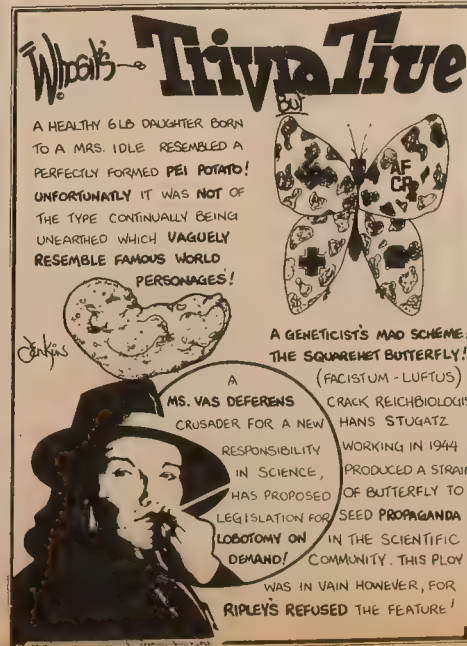 Whosit's
Trivia But True
A HEALTHY 6LB DAUGHTER BORN
TO A MRS. IDLE RESEMBLED A
PERFECTLY FORMED PEI POTATO!
UNFORTUNATLY IT WAS NOT OF
THE TYPE CONTINUALLY BEING
UNEARTHED WHICH VAGUELY
RESEMBLE FAMOUS WORLD
PERSONAGES!
AF
CR
Jenkins
A GENETICIST'S MAD SCHEME:
THE SQUAREHET BUTTERFLY!
(FACISTUM-LUFTUS)
CRACK REICHBIOLOGIS
HANS STUGATZ
WORKING IN 1944
PRODUCED A STRAIN
OF BUTTERFLY TO
SEED PROPAGANDA
IN THE SCIENTIFIC
COMMUNITY. THIS PLOY
WAS IN VAIN HOWEVER, FOR
RIPLEY'S REFUSED THE FEATURE!
A
MS. VAS DEFERENS
CRUSADER FOR A NEW
RESPONSIBILITY
IN SCIENCE,
HAS PROPOSED
LEGISLATION FOR
LOBOTOMY ON
DEMAND!